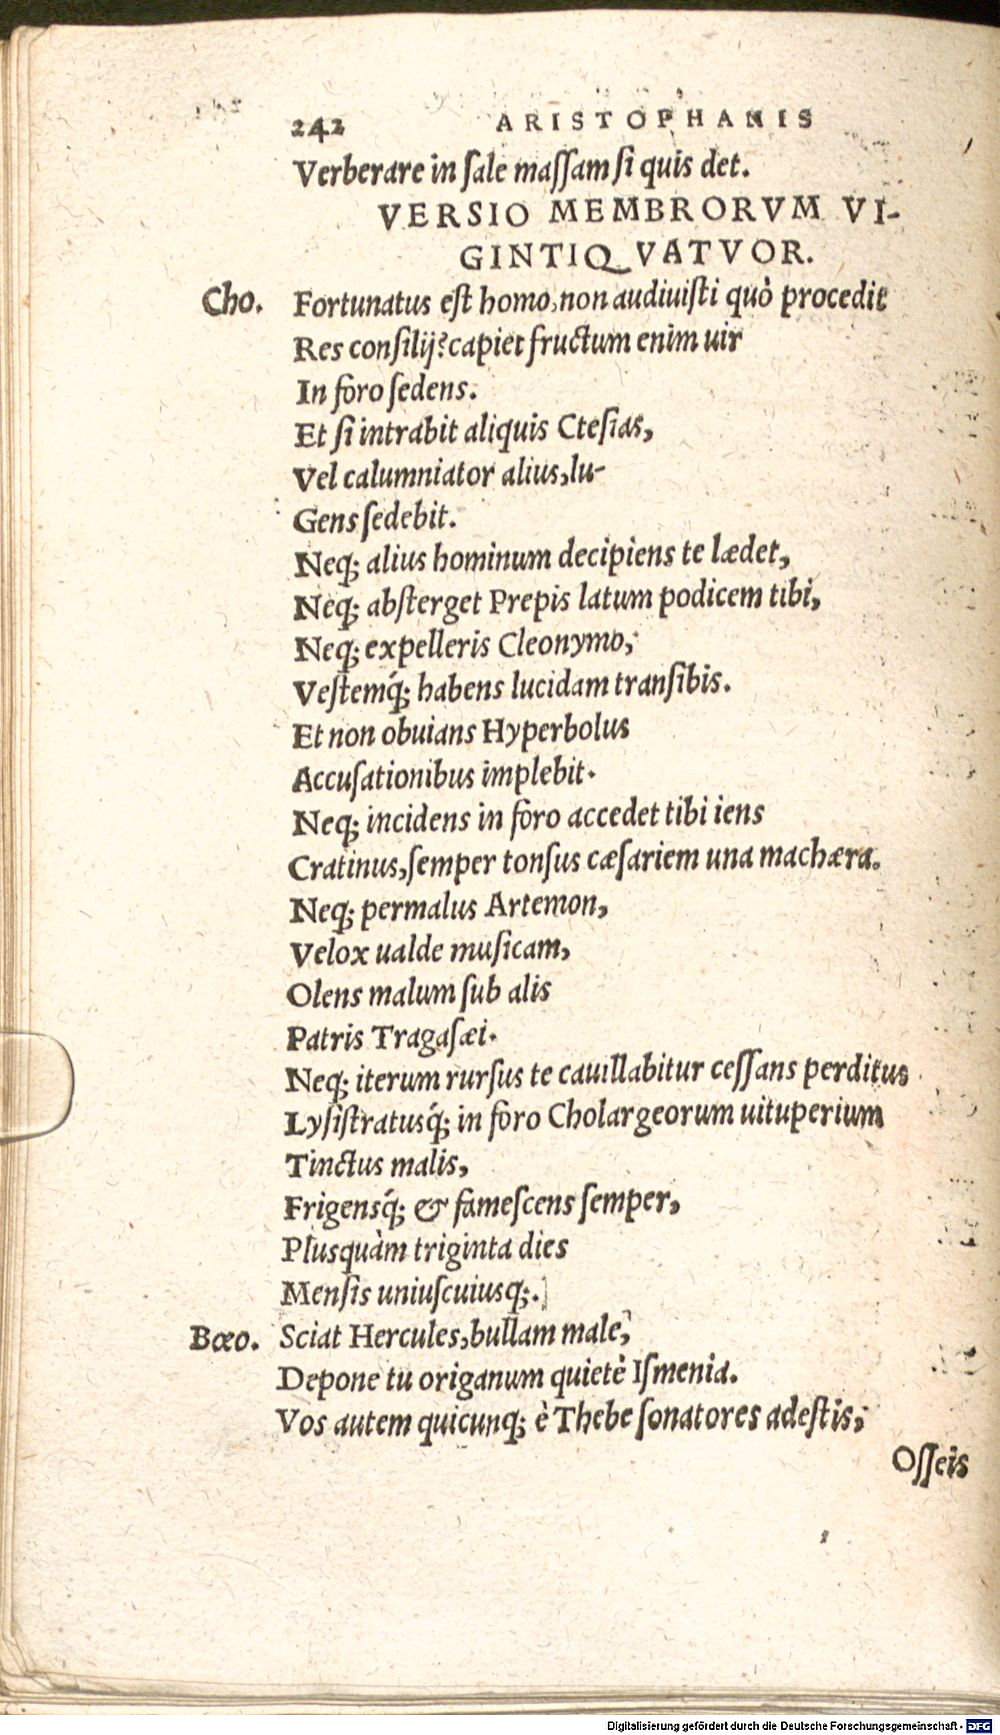 242 ARISTOPHANIS
Verberare in ſale maſſam ſi quis det.
VERSIO MEMBRORVM VI-
GINTIQVATVOR.
Cho. Fortunatus eſt homo, non audiuiſti quò procedit
Res conſilij? capiet fructum enim uir
In foro ſedens.
Et ſi intrabit aliquis Cteſias,
Vel calumniator alius, lu-
Gens ſedebit.
Neq; alius hominum decipiens te lædet,
Neq; abſterget Prepis latum podicem tibi,
Neq; expelleris Cleonymo;
Veſtemq́; habens lucidam tranſibis.
Et non obuians Hyperbolus
Accuſationibus implebit.
Neq; incidens in foro accedet tibi iens
Cratinus, ſemper tonſus cæſariem una machæra.
Neq; permalus Artemon,
Velox ualde muſicam,
Olens malum ſub alis
Patris Tragaſæi.
Neq; iterum rurſus te cauillabitur ceſſans perditus
Lyſiſtratusq́; in foro Cholargeorum uituperium
Tinctus malis,
Frigensq́; & fameſcens ſemper,
Plusquàm triginta dies
Menſis uniuſcuiusq;.
Bœo. Sciat Hercules, bullam male,
Depone tu origanum quietè Iſmenia.
Vos autem quicunq; è Thebe ſonatores adeſtis,
Oſſeis
Digitalisierung gefördert durch die Deutsche Forschungsgemeinschaft - DFG